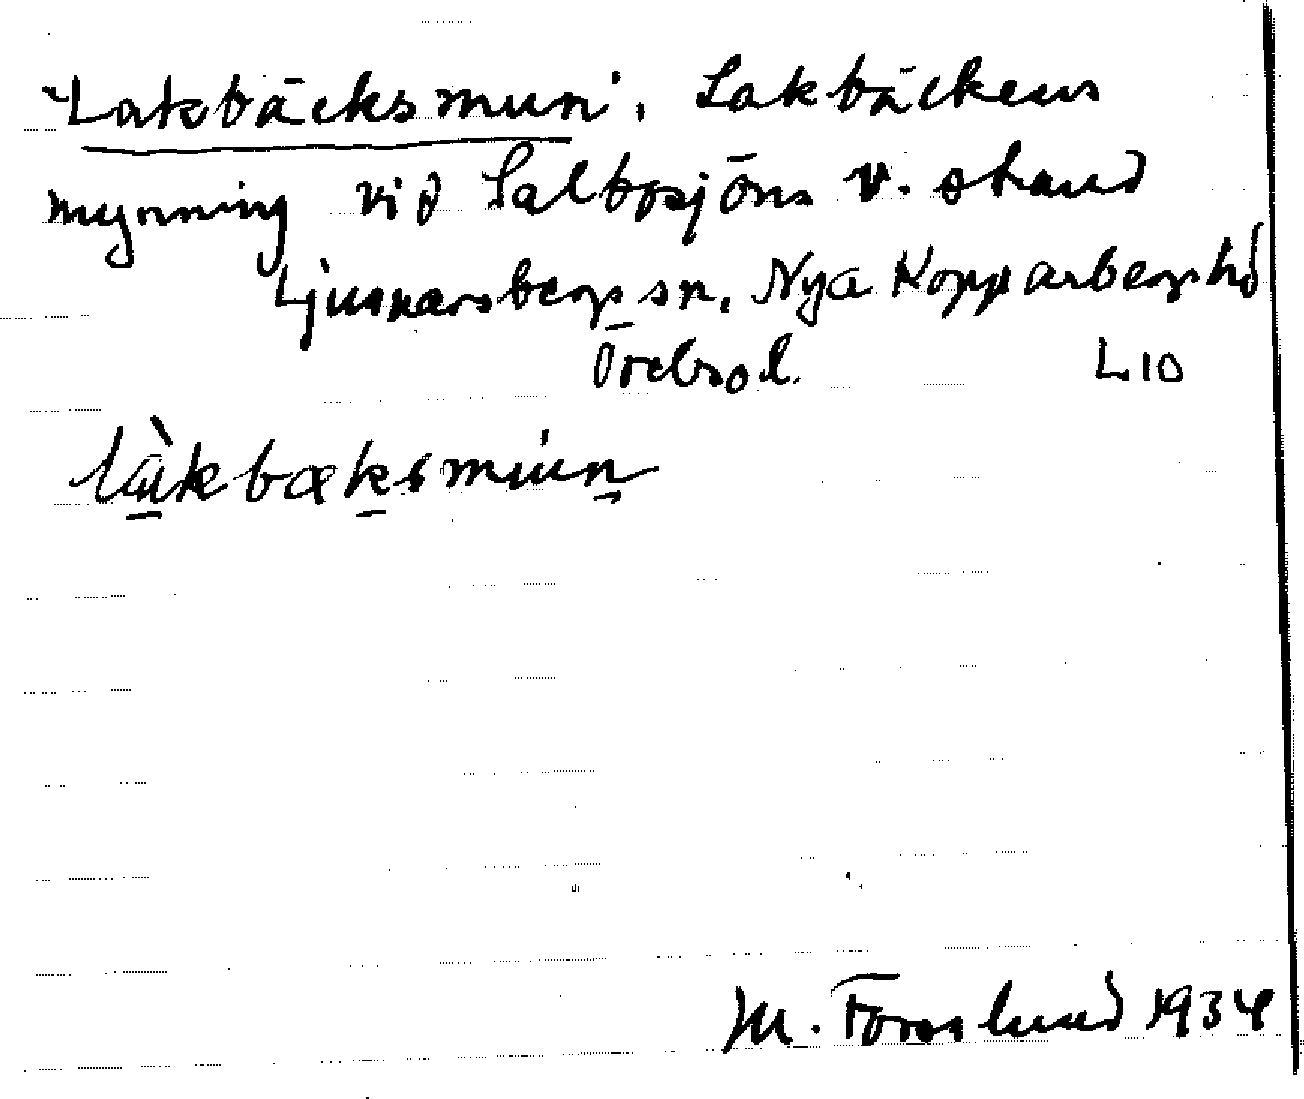 Lakbäcksmun, Lakbäckens
mynning vid Salbosjöns v. strand
Ljusnarsbergs sn, Nya Kopparbergs hd
Örebro l. L 10
M. Forslund 1934